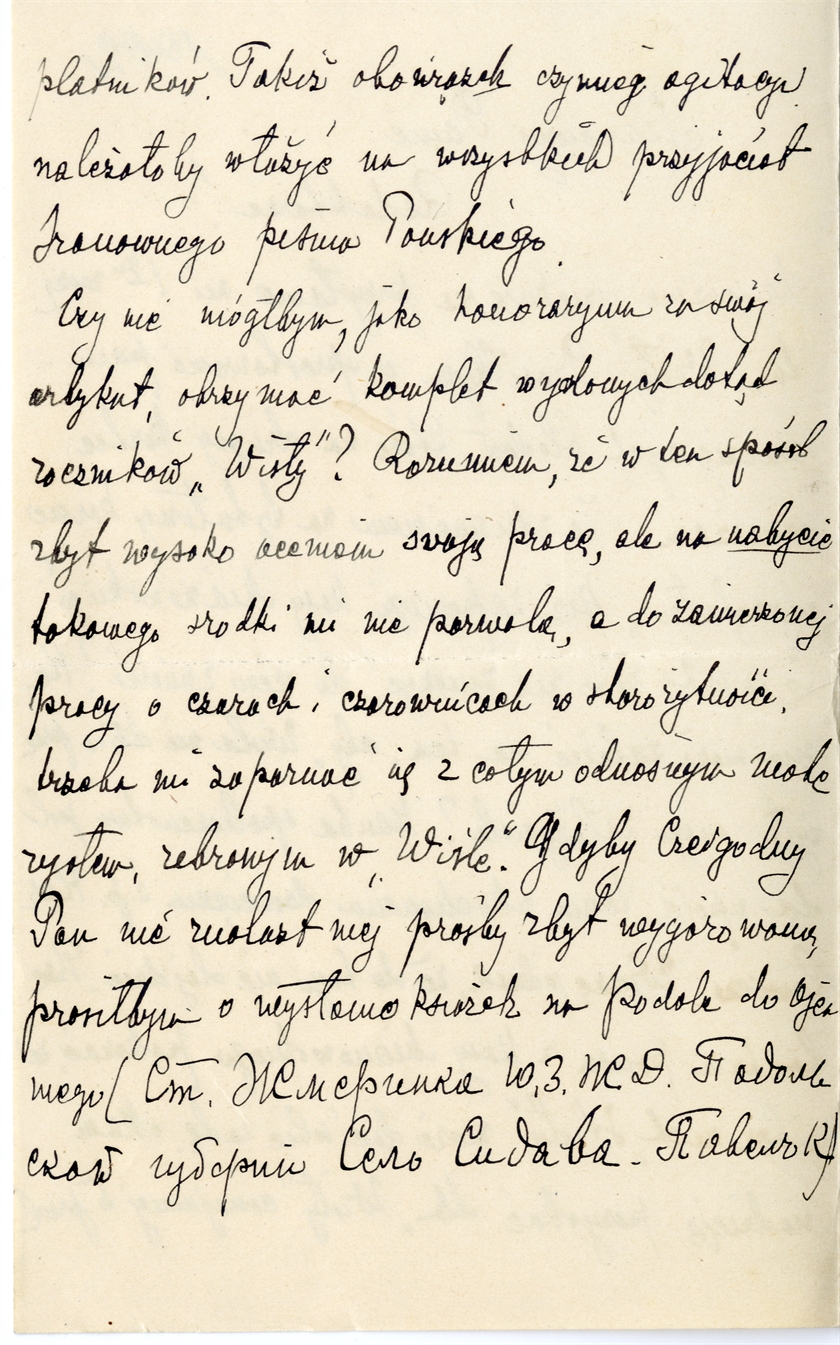 płatników. Takiż obowiązek czynnej agitacyi
należałoby włożyć na wszystkich przyjaciół
Szanownego pisma Pańskiego.
Czy nie mógłbym, jako honoraryum za swój
artykuł, otrzymać komplet wydanych dotąd
roczników „Wisły"? Rozumiem, że w ten sposób
zbyt wysoko oceniam swoją pracę, ale na nabycie
takowego środki mi nie pozwolą, a do zamierzonej
pracy o czarach i czarownicach w starożytności,
trzeba mi zapoznać się z całym odnośnym mate
ryałem, zebranym w „Wiśle". Gdyby Czcigodny
Pan nie znalazł mej prośby zbyt wygórowaną,
prosiłbym o wysłanie książek na Podole do Ojca
mego (Ст. Жмеринка Ю.З.Ж.Д. Подоль
ской губернии Село Сидава.